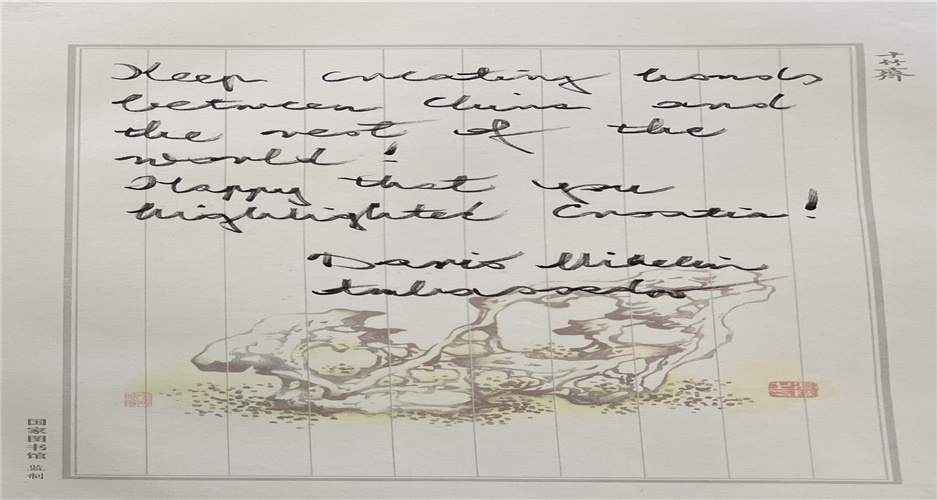 Keep creating bonds
between China and
the rest of the
world!
Happy that you
highlighted Croatia!
Dario Mihelin
ambassador
国家图书馆 监制